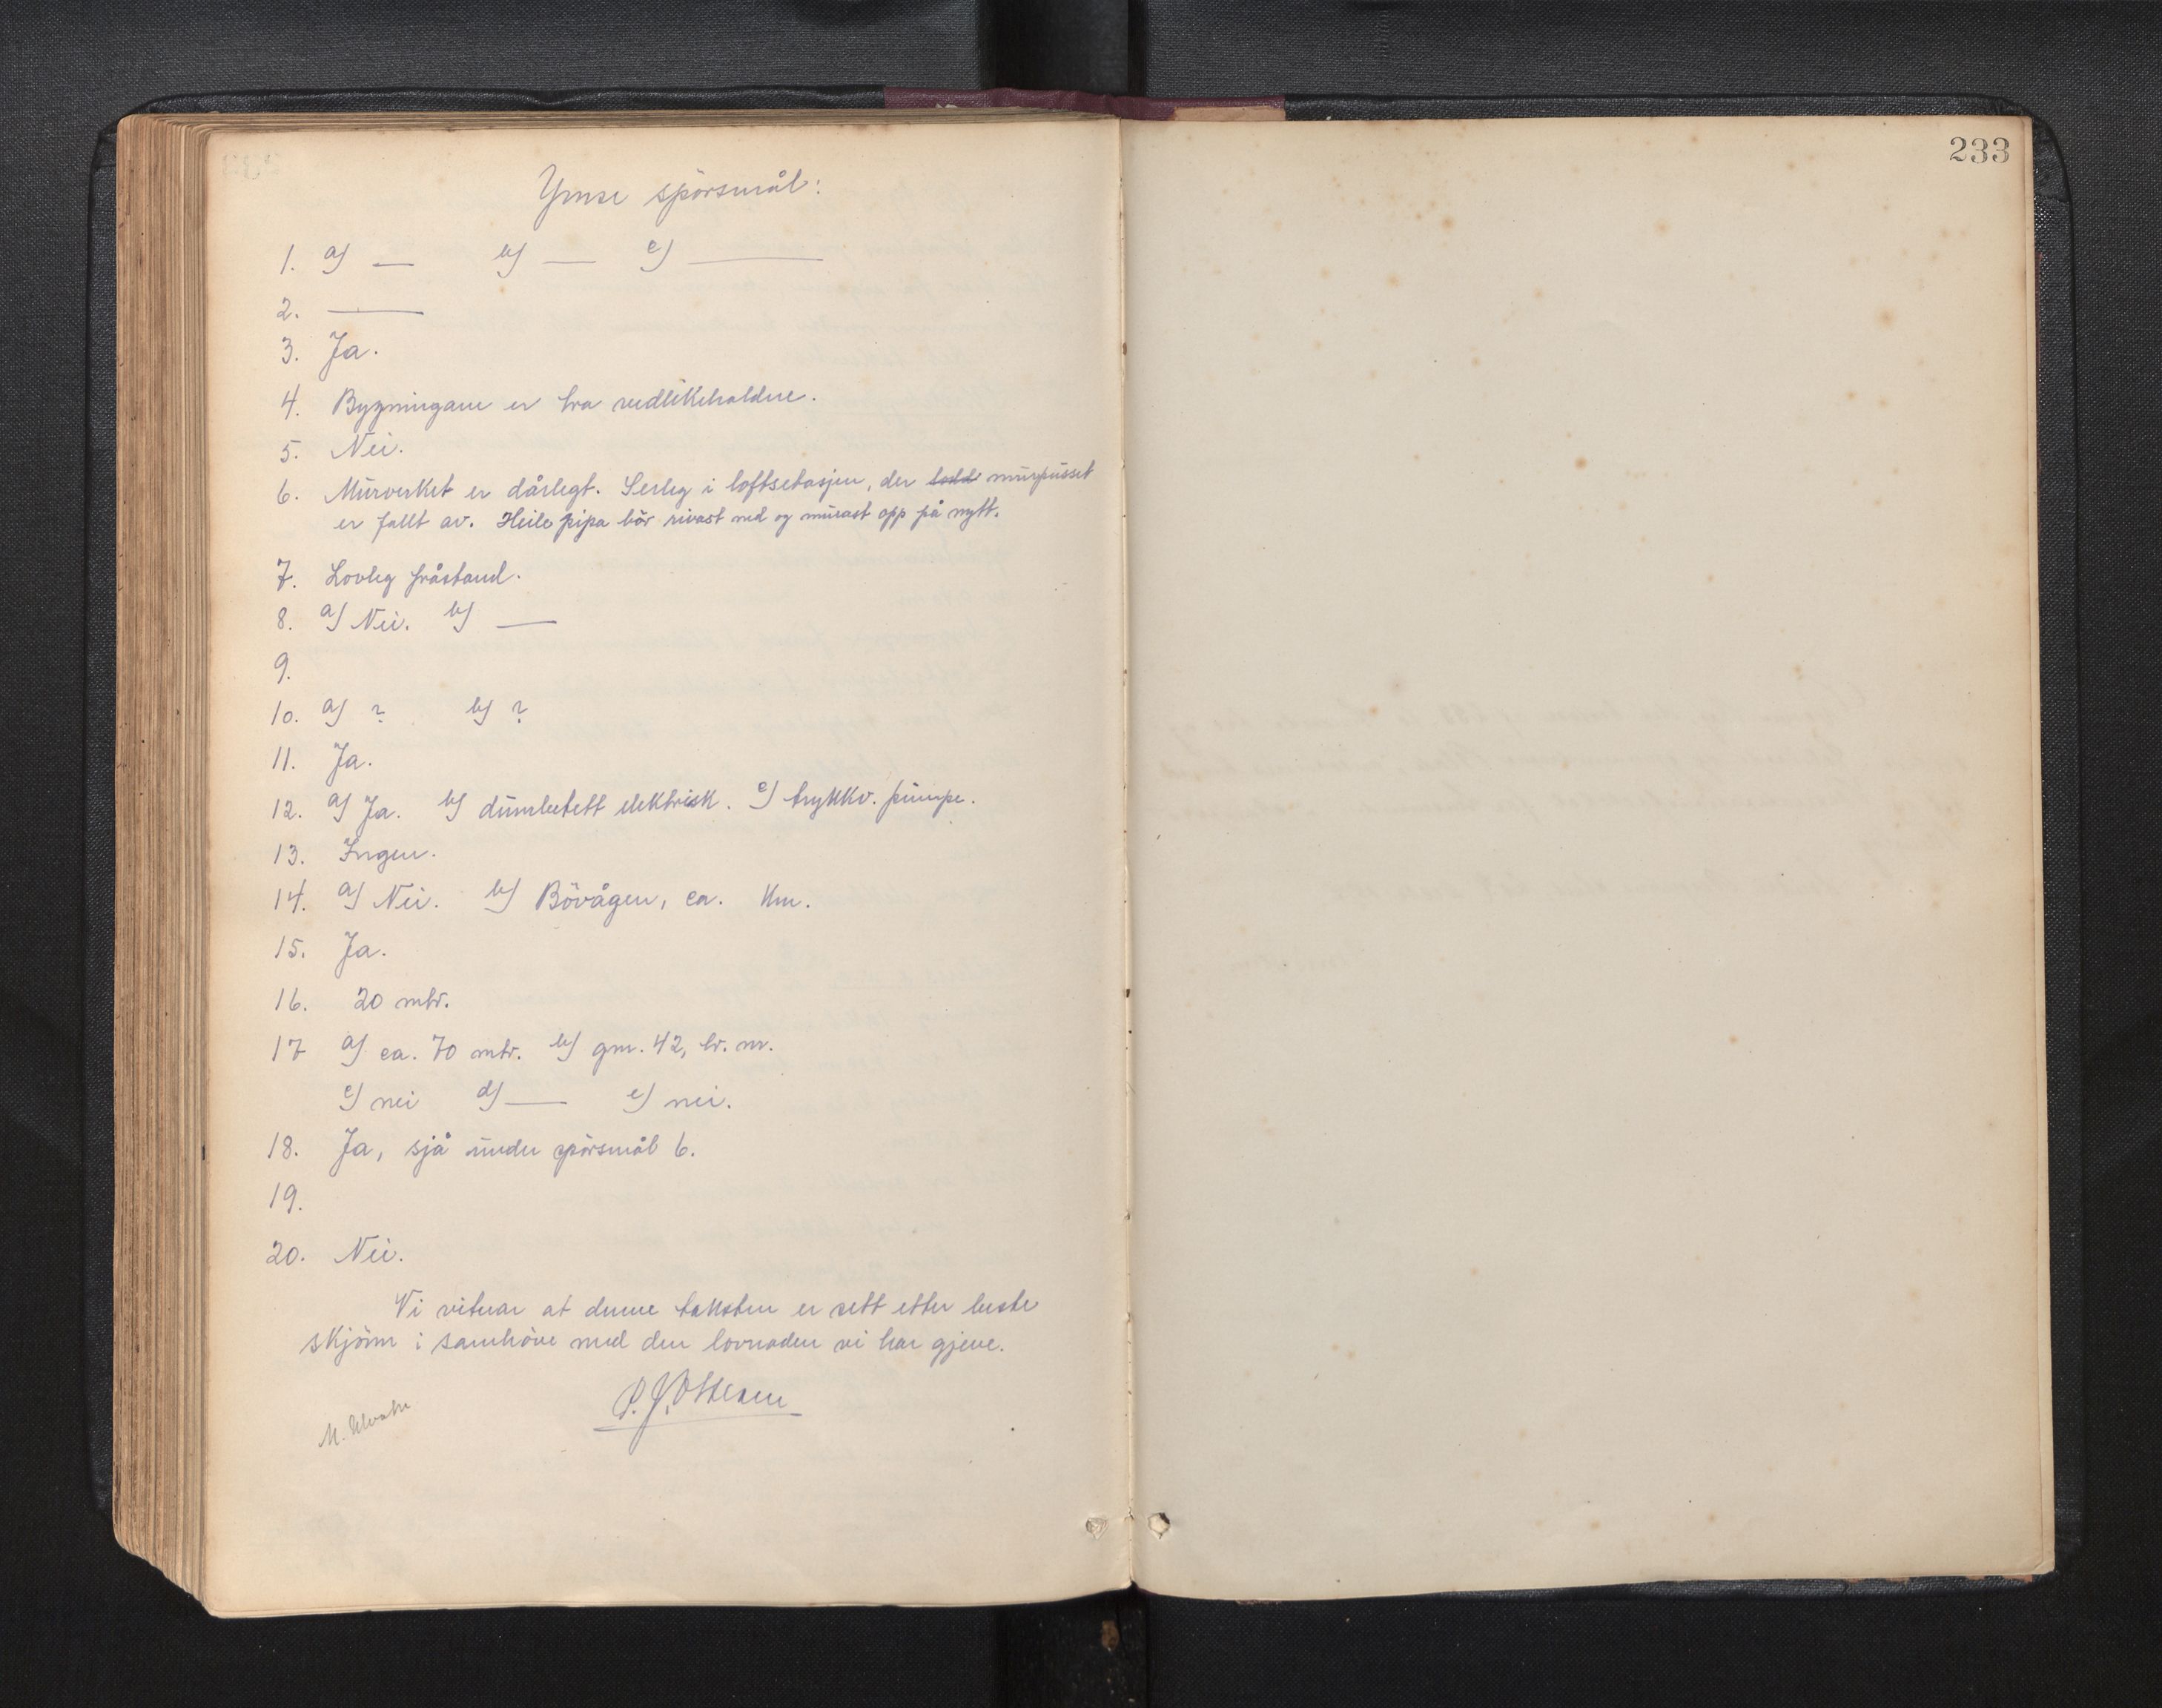 Ymse spörsmål:
1. a) — b) — c) —
2. —
3. Ja.
4. Bygningane er bra vedlikehaldne.
5. Nei.
6. Murverket er dårlegt. Serleg i loftsetasjen, der murpusset
er fallt av. Heile pipa bör rivast ned og murast opp på nytt.
7. Lovleg fråstand.
8. a) Nei. b) —
9.
10. a) ? b) ?
11. Ja.
12. a) Ja. b) elektrisk. c) trykkv. pumpe.
13. Ingen.
14. a) Nei. b) Bövågen, ca. km.
15. Ja.
16. 20 mtr.
17 a) ca. 70 mtr. b) gnr. 42, br. nr.
c) nei d) — e) nei.
18. Ja, sjå under spörsmål 6.
19.
20. Nei.
Vi vitnar at denne taksten er sett etter beste
skjönn i samhöve med den lovnaden vi har gjeve.
P. J. Ottesen
M.
233